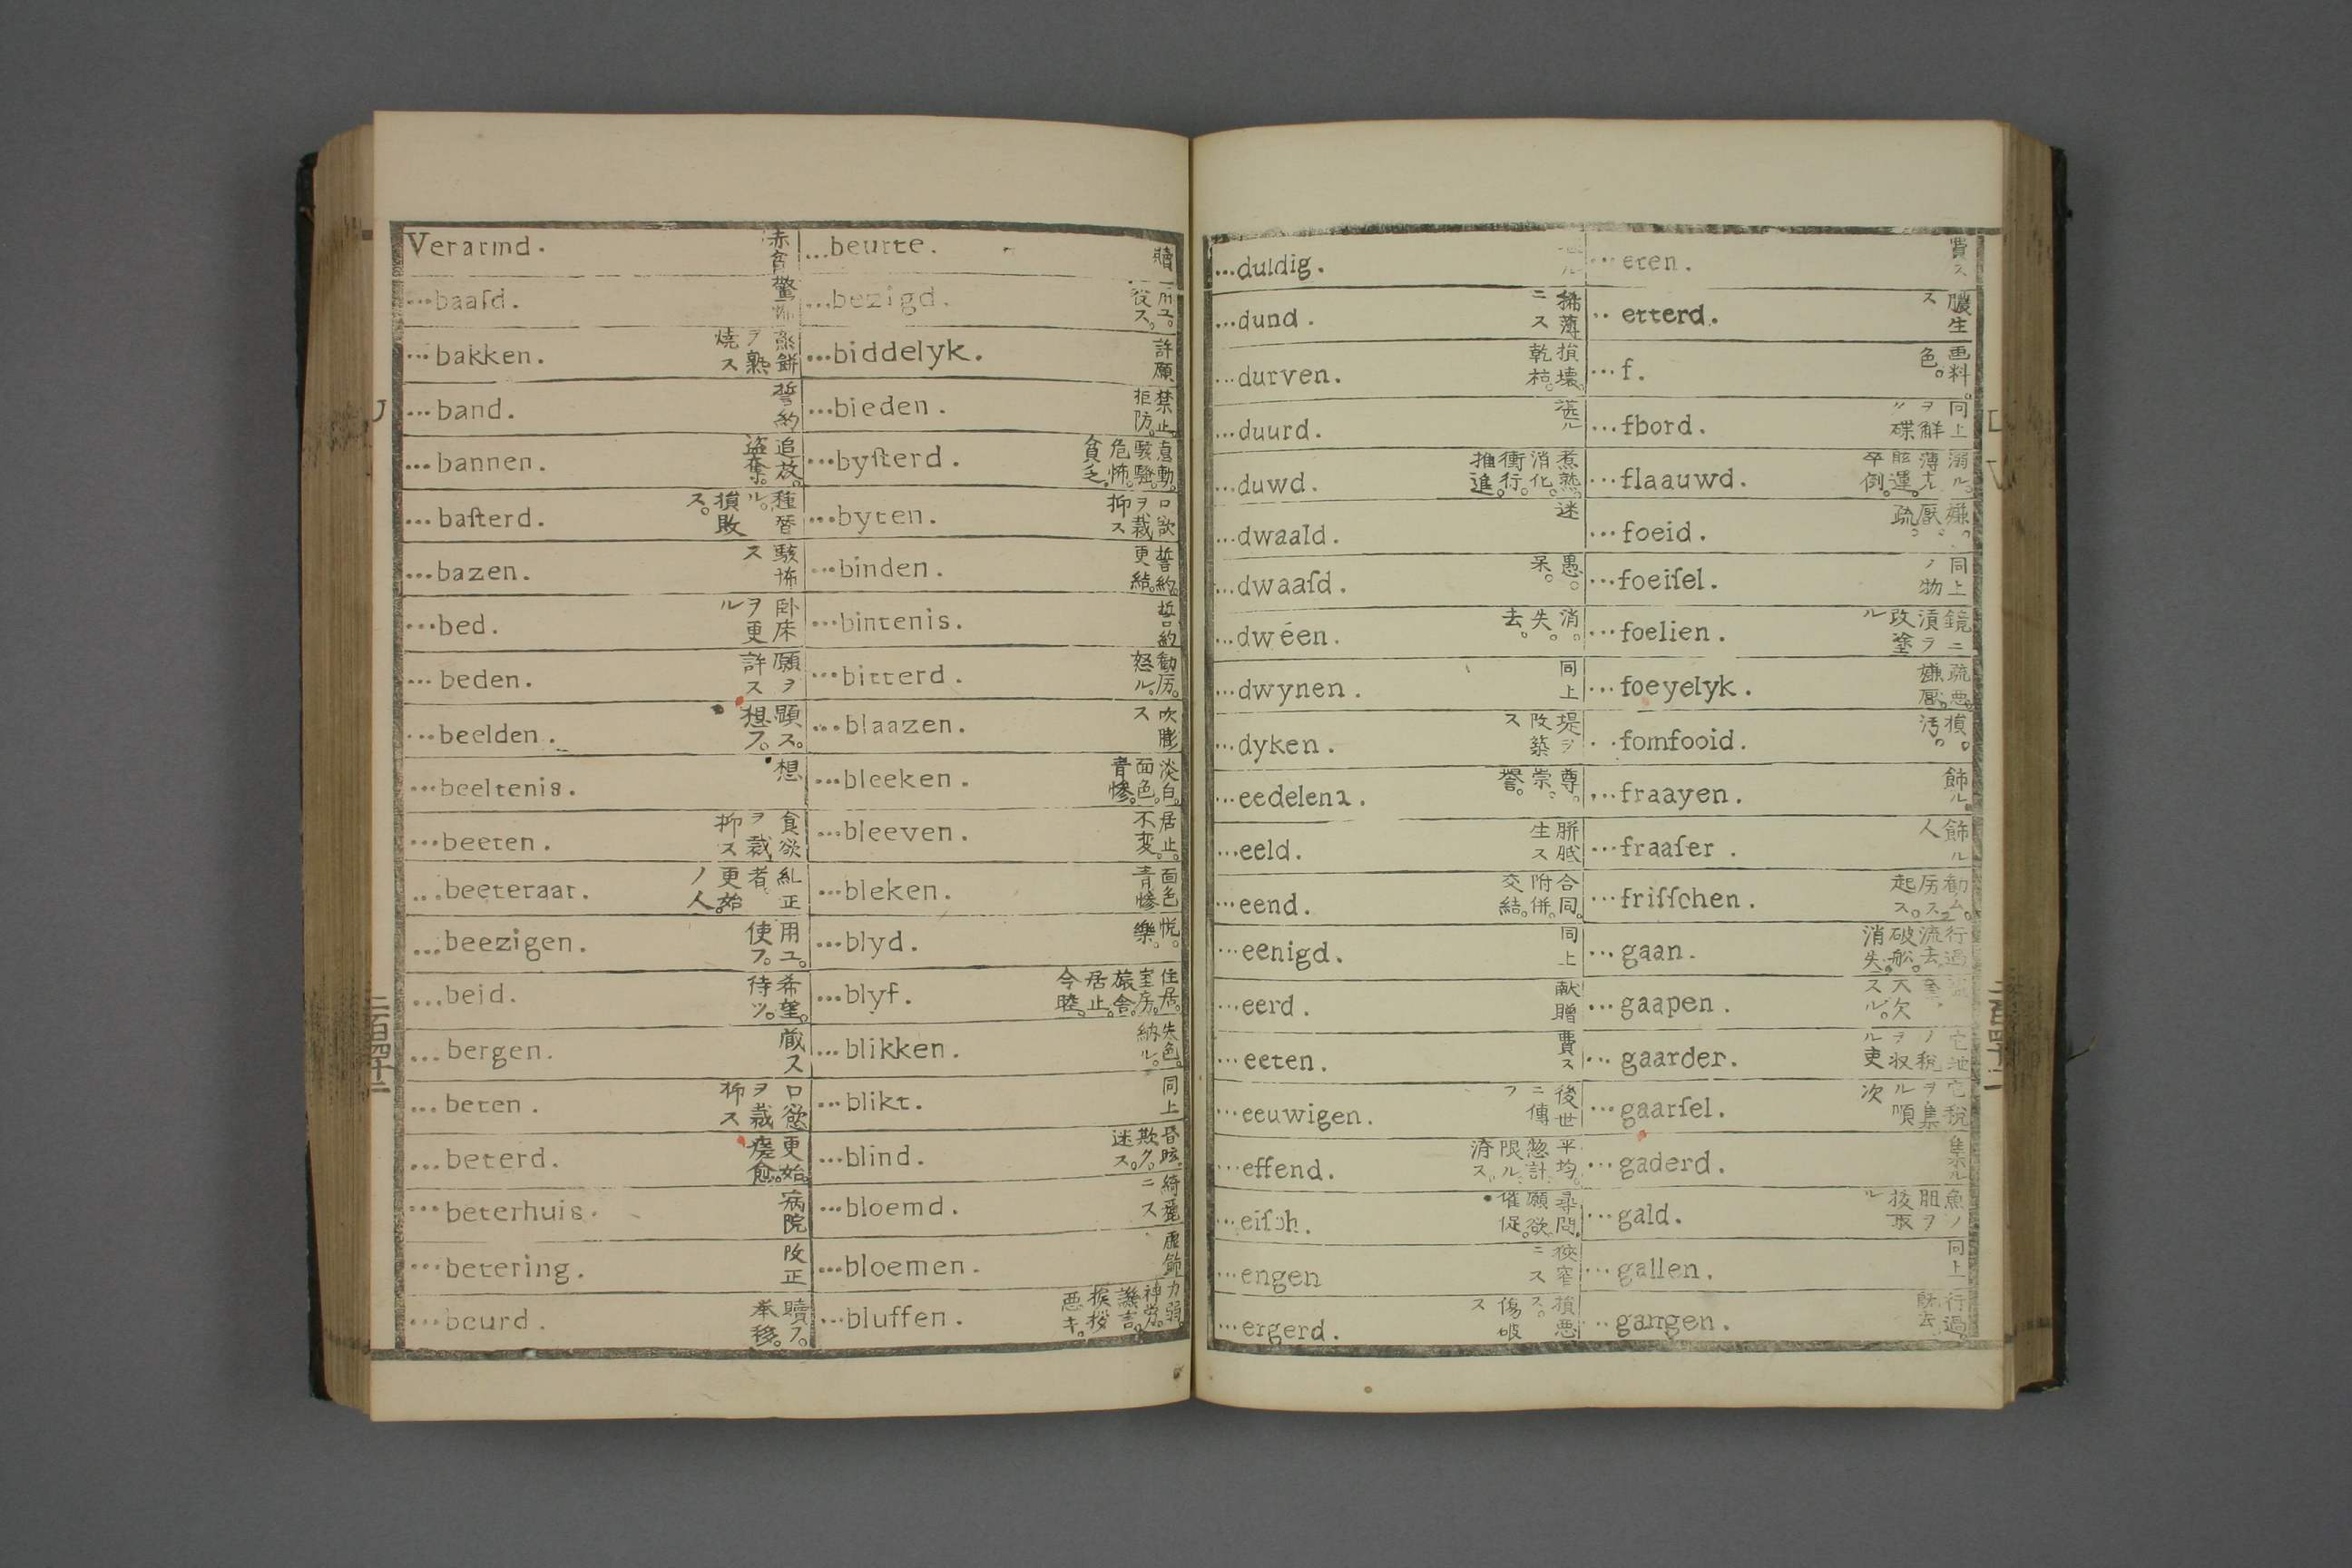 Verarmd. 赤貧
...baaſd. 驚怖
...bakken. 蒸餅ヲ熟焼ス
...band. 誓約
...bannen. 追放。盗奪。
...baſterd. 種替ル。損敗ス。
...bazen. 駭怖ス
...bed. 卧床ヲ更ル
...beden. 願ヲ許ス
...beelden. 顕ス。想フ。
...beeltenis. 想
...beeten. 食欲ヲ裁抑ス
...beeteraar. 糺正者。更始ノ人。
...beezigen. 用ユ。使フ。
...beid. 希望。待ツ。
...bergen. 蔵ス
...beten. 口慾ヲ裁抑ス
...beterd. 更始。痊愈。
...beterhuis. 病院
...betering. 改正
...beurd. 贖フ。挙移。
...beurte. 贖
...bezigd. 用ユ。役ス。
...biddelyk. 許願
...bieden. 禁止。拒防。
...byſterd. 意動。駭騒。危怖。貪乏。
...byten. 口欲ヲ裁抑ス
...binden. 誓約。更結。
...bintenis. 誓約
...bitterd. 勧厉。怒ル。
...blaazen. 吹膨ス
...bleeken. 淡白。面色青惨。
...bleeven. 居止。不変。
...bleken. 面色青惨
...blyd. 悦。樂。
...blyf. 住居。室房。旅舎。居止。今睦。
...blikken. 失色。納ル。
...blikt. 同上
...blind. 昏眩。欺ク。迷ス。
...bloemd. 綺麗ニス
...bloemen. 虚飾
...bluffen. 力弱 悪キ。
...duldig.
...dund. 稀薄ニス
...durven. 損壊。乾枯。
...duurd. 堪ル
...duwd. 煮熟。消化。衝行。推進。
...dwaald. 迷
...dwaaſd. 愚。呆。
...dwéen. 消。失。去。
...dwynen. 同上
...dyken. 堤ヲ改築ス
...eedelena. 尊。崇。誉。
...eeld. 胼胝生ス
...eend. 合同。附併。交結。
...eenigd. 同上
...eerd. 献贈
...eeten. 費ス
...eeuwigen. 後世ニ傳フ
...effend. 平均。惣計。限ル。済ス
...eiſch. 尋問。願欲。催促。
...engen 狹窄ニス
...ergerd. 損悪ス。傷破ス
...eten. 費ス
...etterd. 膿生ス
...f. 画料。色。
...fbord. 同上ヲ觧ク碟
...flaauwd. 溺ル。薄キル。眩運。卒倒。
...foeid. 嫌。厭。疏。
...foeiſel. 同上ノ物
...foelien. 鏡ニ漬ヲ改塗ル
...foeyelyk. 疏悪。嫌厭。
...fomfooid. 損。汚。
...fraayen. 飾ル。
...fraaſer. 飾ル人
...friſſchen. 勧ム。厉ス。起ス。
...gaan. 行過。流去。破舩。消失。
...gaapen. 大欠スル。
...gaarder. 宅地ノ税ヲ収ル吏
...gaarſel. 宅税ヲ集ル順次
...gaderd. 集ル
...gald. 魚ノ胆ヲ抜取ル
...gallen. 同上
...gangen. 行過。
二百四十二